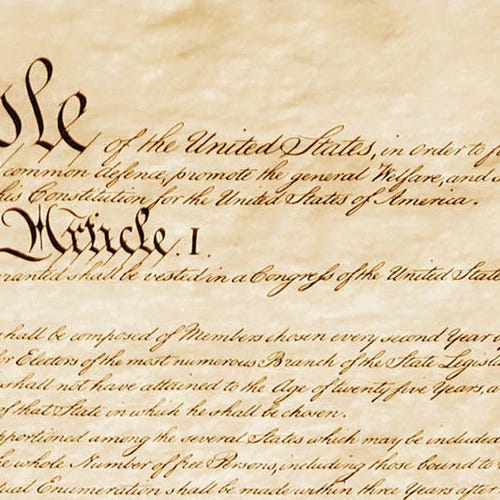 ple of the United States, in order to f
common defence, promote the general Welfare, and s
his Constitution for the United States of America.
Article. I.
granted shall be vested in a Congress of the United State
shall be composed of Members chosen every second Year
or Electors of the most numerous Branch of the State Legisl
shall not have attained to the Age of twenty five Years, a
of that State in which he shall be chosen.
pportioned among the several States which may be included
he whole Number of free Persons, including those bound to
tual Enumeration shall be made within three Years after